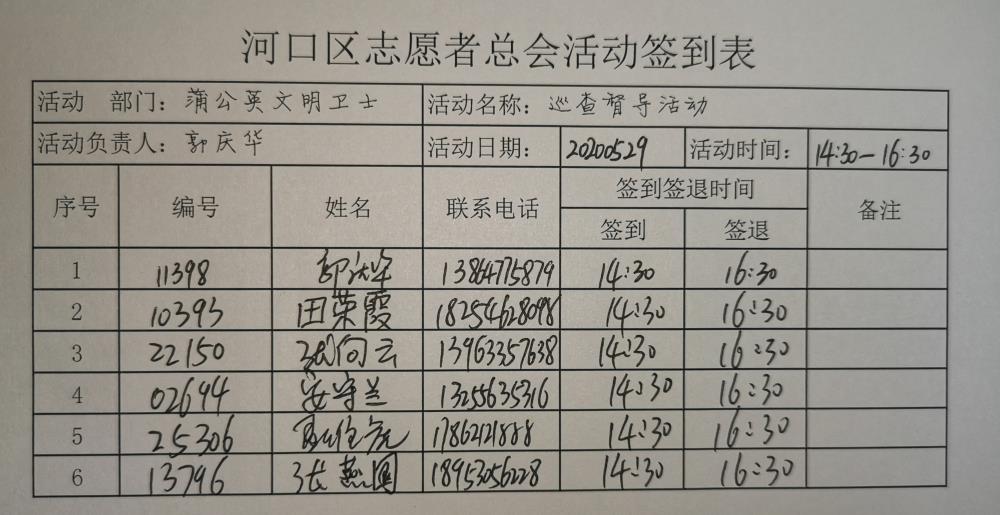 河口区志愿者总会活动签到表
活动 部门：蒲公英文明卫士 活动名称：巡查督导活动
活动负责人：郭庆华 活动日期： 20200529 活动时间： 14:30-16:30
序号 编号 姓名 联系电话 签到签退时间 备注
签到 签退
1 11398 郭庆华 13864775879 14:30 16:30
2 10393 田荣霞 18254628098 14:30 16:30
3 22150 张向云 13963357638 14:30 16:30
4 02694 安守兰 13255635316 14:30 16:30
5 25306 14:30 16:30
6 13796 张燕国 18953056228 14:30 16:30